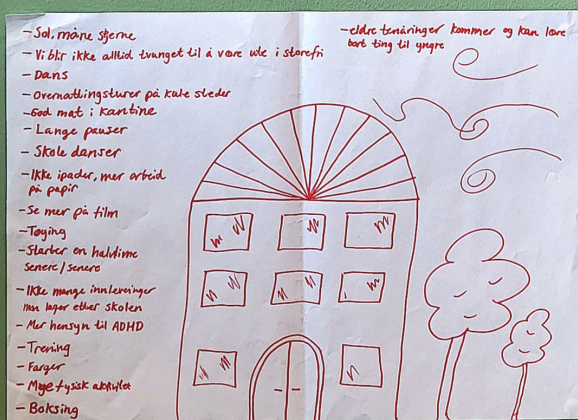 - Sol, måne stjerne
- Vi blir ikke alltid tvunget til å være ute i storefri
- Dans
- Overnattingsturer på kule steder
- God mat i kantine
- Lange pauser
- Skole danser
- Ikke ipader, mer arbeid
på papir
- Se mer på film
- Tøying
- Starter en halvtime
senere / senere
- Ikke mange innleveringer
man lager etter skolen
- Mer hensyn til ADHD
- Trening
- Farger
- Mye fysisk aktivitet
- Boksing
- eldre tenåringer kommer og kan lære
bort ting til yngre